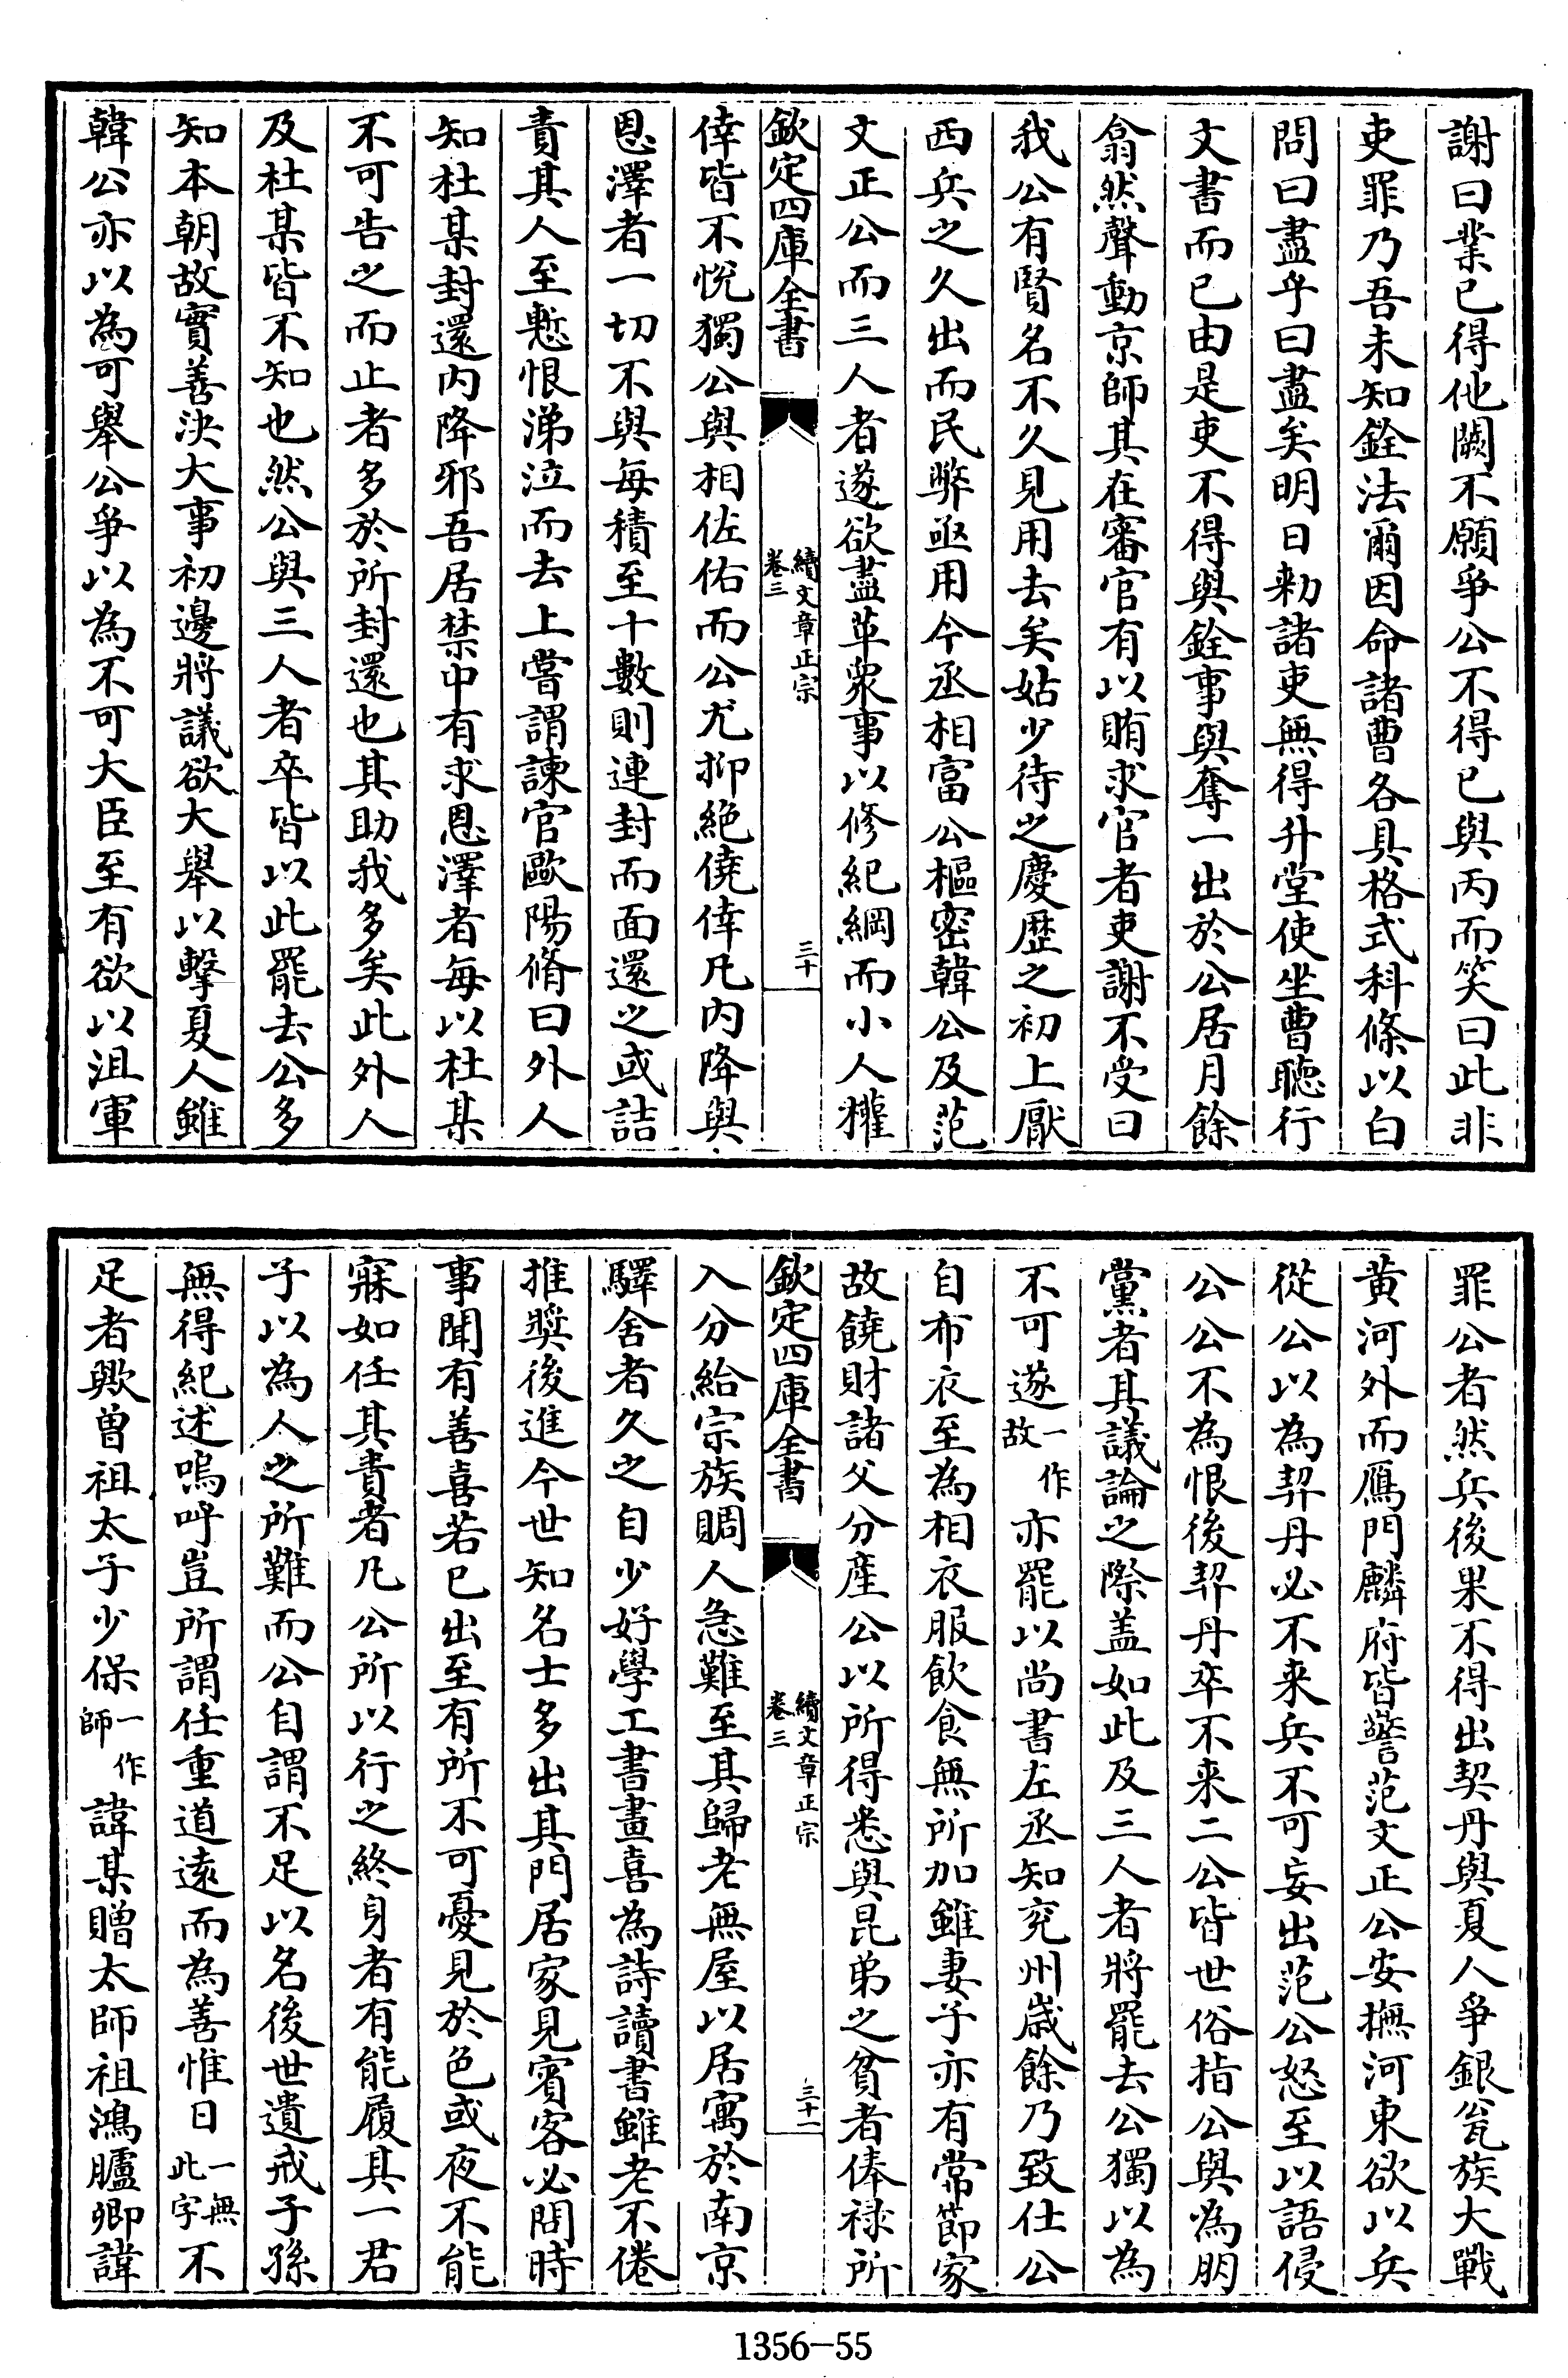 謝曰業已得他闕不願爭公不得已與丙而笑曰此非
吏罪乃吾未知銓法爾因命諸曹各具格式科條以白
問曰盡乎曰盡矣明日勑諸吏無得升堂使坐曹聽行
文書而已由是吏不得與銓事與奪一出於公居月餘
翕然聲動京師其在審官有以賄求官者吏謝不受曰
我公有賢名不久見用去矣姑少待之慶歷之初上厭
西兵之久出而民弊亟用今丞相富公樞密韓公及范
文正公而三人者遂欲盡革衆事以修紀綱而小人權
欽定四庫全書
續文章正宗
卷三
三十
倖皆不悅獨公與相佐佑而公尤抑絶僥倖凡内降與
恩澤者一切不與每積至十數則連封而面還之或詰
責其人至慙恨涕泣而去上嘗謂諫官歐陽脩曰外人
知杜某封還内降邪吾居禁中有求恩澤者每以杜某
不可告之而止者多於所封還也其助我多矣此外人
及杜某皆不知也然公與三人者卒皆以此罷去公多
知本朝故實善決大事初邊將議欲大舉以擊夏人雖
韓公亦以為可舉公爭以為不可大臣至有欲以沮軍
罪公者然兵後果不得出契丹與夏人爭銀瓮族大戰
黄河外而鴈門麟府皆警范文正公安撫河東欲以兵
從公以為契丹必不来兵不可妄出范公怒至以語侵
公公不為恨後契丹卒不来二公皆世俗指公與為朋
黨者其議論之際盖如此及三人者將罷去公獨以為
不可遂一作故亦罷以尚書左丞知兖州歲餘乃致仕公
自布衣至為相衣服飲食無所加雖妻子亦有常節家
故饒財諸父分産公以所得悉與昆弟之貧者俸禄所
欽定四庫全書
續文章正宗
卷三
三十一
入分給宗族賙人急難至其歸老無屋以居寓於南京
驛舍者久之自少好學工書畫喜為詩讀書雖老不倦
推奬後進今世知名士多出其門居家見賓客必問時
事聞有善喜若已出至有所不可憂見於色或夜不能
寐如任其責者凡公所以行之終身者有能履其一君
子以為人之所難而公自謂不足以名後世遺戒子孫
無得紀述嗚呼豈所謂任重道遠而為善惟日一無此字不
足者歟曾祖太子少保一作師諱某贈太師祖鴻臚卿諱
1356-55